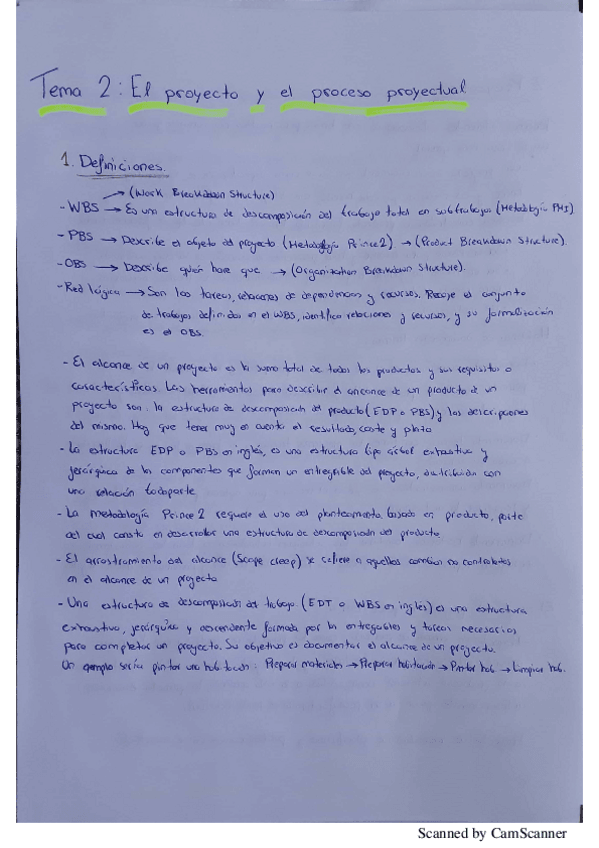 Tema 2: El proyecto y el proceso proyectual
1. Definiciones.
(Work Breakdown Structure)
- WBS → Es una estructura de descomposición del trabajo total en subtrabajos (Metodología PMI)
- PBS → Describe el objeto del proyecto (Metodología Prince2) → (Product Breakdown Structure).
- OBS → Describe quién hace que → (Organization Breakdown Structure).
- Red lógica → Son las tareas, relaciones de dependencias y recursos. Recoge el conjunto
de trabajos definidos en el WBS, identifica relaciones y recursos, y su formalización
es el OBS.
- El alcance de un proyecto es la suma total de todos los productos y sus requisitos o
características. Las herramientas para describir el alcance de un producto de un
proyecto son: la estructura de descomposición del producto (EDP o PBS) y las descripciones
del mismo. Hay que tener muy en cuenta el resultado, coste y plazo
- La estructura EDP o PBS en inglés, es una estructura tipo árbol exhaustiva y
jerárquica de los componentes que forman un entregable del proyecto, distribuida con
una relación todo-parte.
- La metodología Prince2 requiere el uso del planteamiento basado en producto, parte
del cual consta en desarrollar una estructura de descomposición del producto
- El arrastramiento del alcance (Scope creep) se refiere a aquellos cambios no controlados
en el alcance de un proyecto
- Una estructura de descomposición del trabajo (EDT o WBS en inglés) es una estructura
exhaustiva, jerárquica y descendente formada por los entregables y tareas necesarias
para completar un proyecto. Su objetivo es documentar el alcance de un proyecto.
Un ejemplo sería pintar una habitación: Preparar materiales → Preparar habitación → Pintar hab. → Limpiar hab.
Scanned by CamScanner